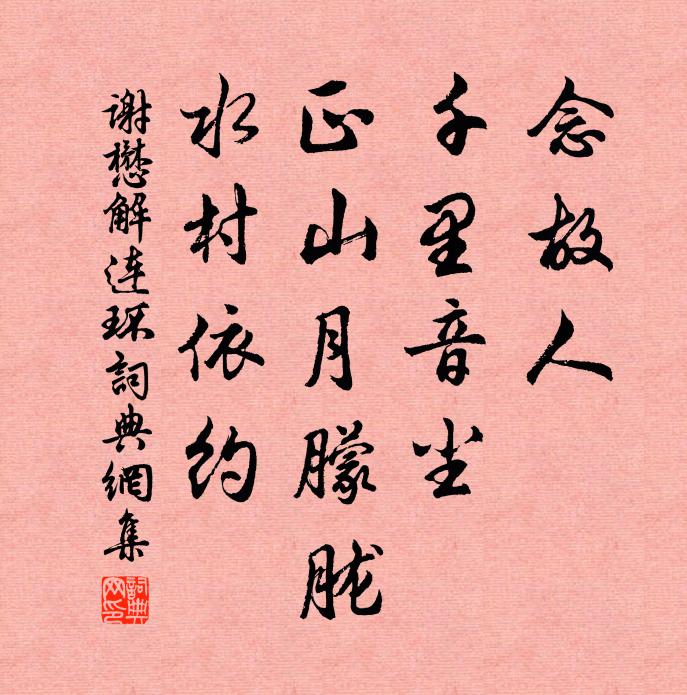 念故人
千里音尘
正山月朦胧
水村依约
谢懋解连环词典網集
詞典網印